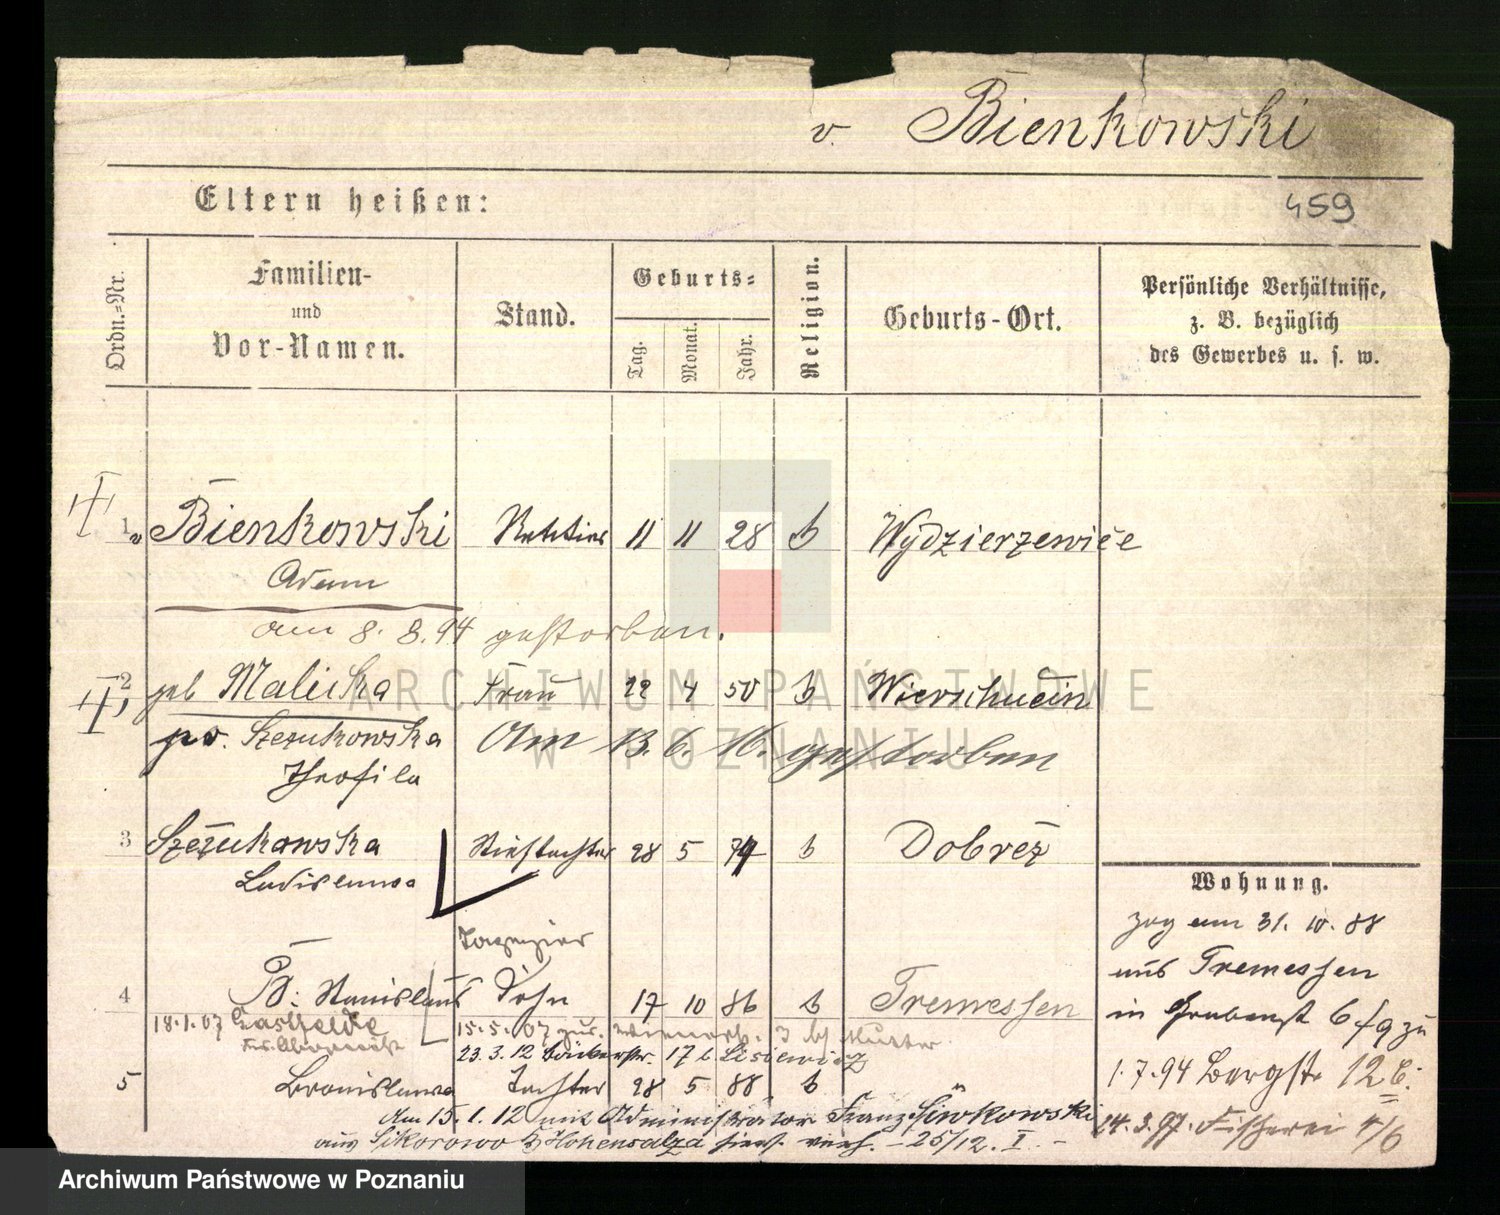 v. Bienkowski
Eltern heißen:
459
Ordn.-Nr.
Familien-
und
Vor-Namen.
Stand.
Geburts-
Tag.
Monat.
Jahr.
Religion.
Geburts-Ort.
Persönliche Verhältnisse,
z. B. bezüglich
des Gewerbes u. s. w.
1 Bienkowski Rentier 11 11 28 Wydzierzewice
Adam
am 8. 8. 94 gestorben.
2 geb Malicka Frau 22 4 50 Wierschucin
Szczukowska Am 13. 6. 16. gestorben
Theofila
3 Szczukowska Stieftochter 28 5 74 Dobrcz
Ladislawa
Tapezier
4 B: Stanislaus Sohn 17 10 86 Tremessen
18.1.07 15.5.07 zur. Mutter
23.3.12 Bäckerstr. 17 b Lisiewicz
5 Bronislawa Tochter 28 5 88
Am 15.1.12 mit Administrator Franz Siwkowski
aus Sikorowo Hohensalza hiers. verh. 25/12. I.
Wohnung.
zog am 31. 10. 88
aus Tremessen
in Grabenst 6 zu
1.7.94 Bergstr 12 b.
14.3.97. Fischerei 4/6
ARCHIWUM PAŃSTWOWE
W POZNANIU
Archiwum Państwowe w Poznaniu